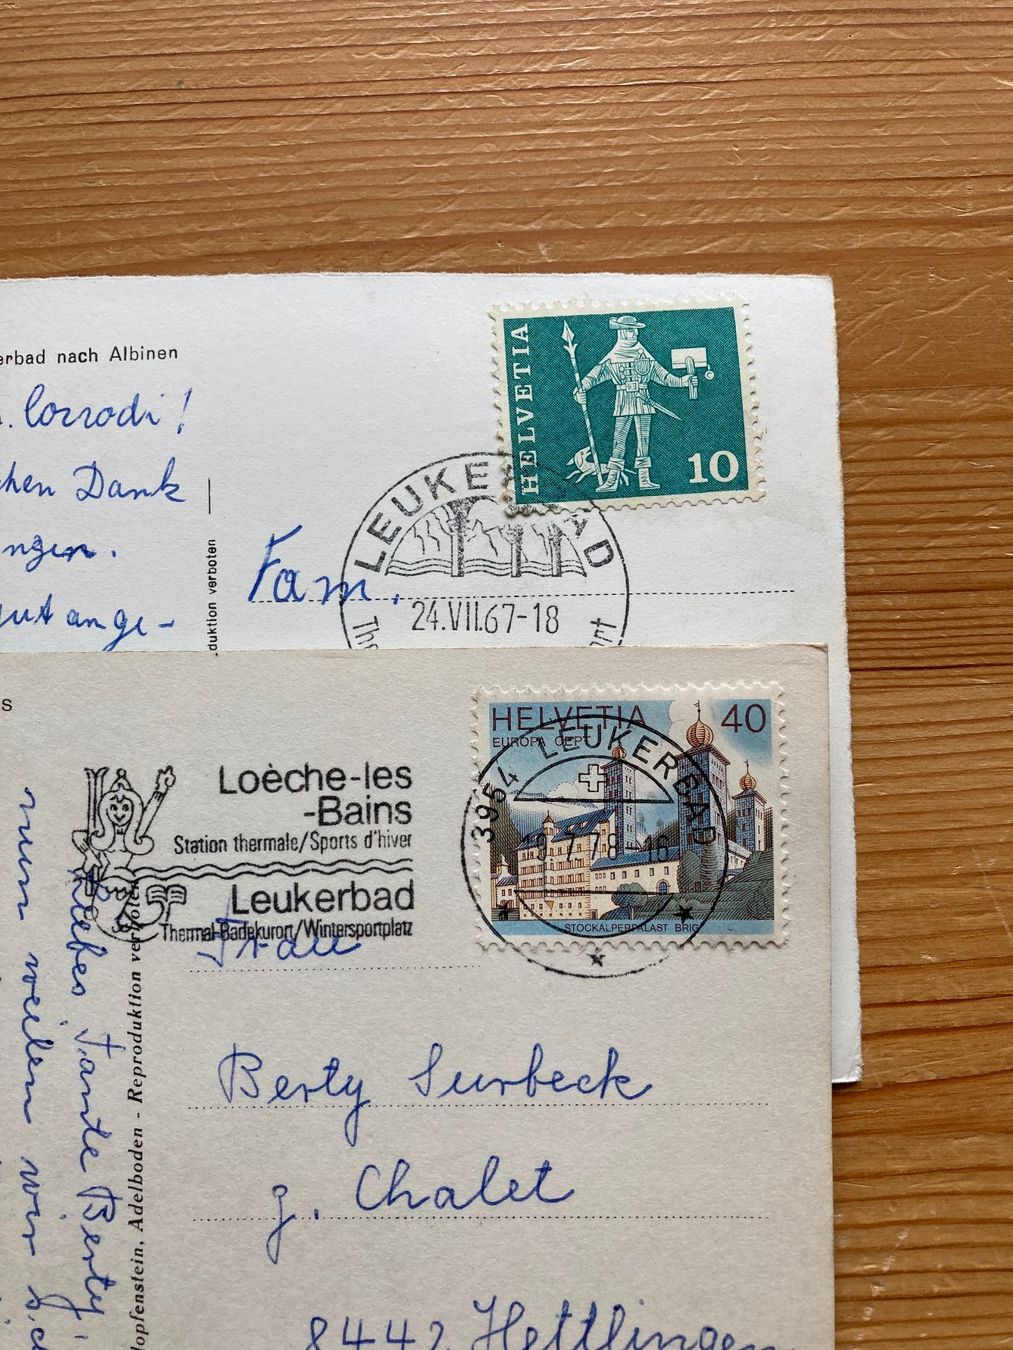 erbad nach Albinen
. Corrodi!
chen Dank
ngen.
gut ange-
duktion verboten
Fam.
HELVETIA
10
LEUKERBAD
24.VII.67-18
s
Loèche-les
-Bains
Station thermale/Sports d'hiver
Leukerbad
Thermal-Badekurort/Wintersportplatz
HELVETIA 40
EUROPA CEPT
STOCKALPERPALAST BRIG
3954 LEUKERBAD
19.7.78-16
Frau
Berty Surbeck
z. Chalet
8442 Hettlingen
Liebes Tante Berty,
nun weilen wir
opfenstein, Adelboden - Reproduktion verboten